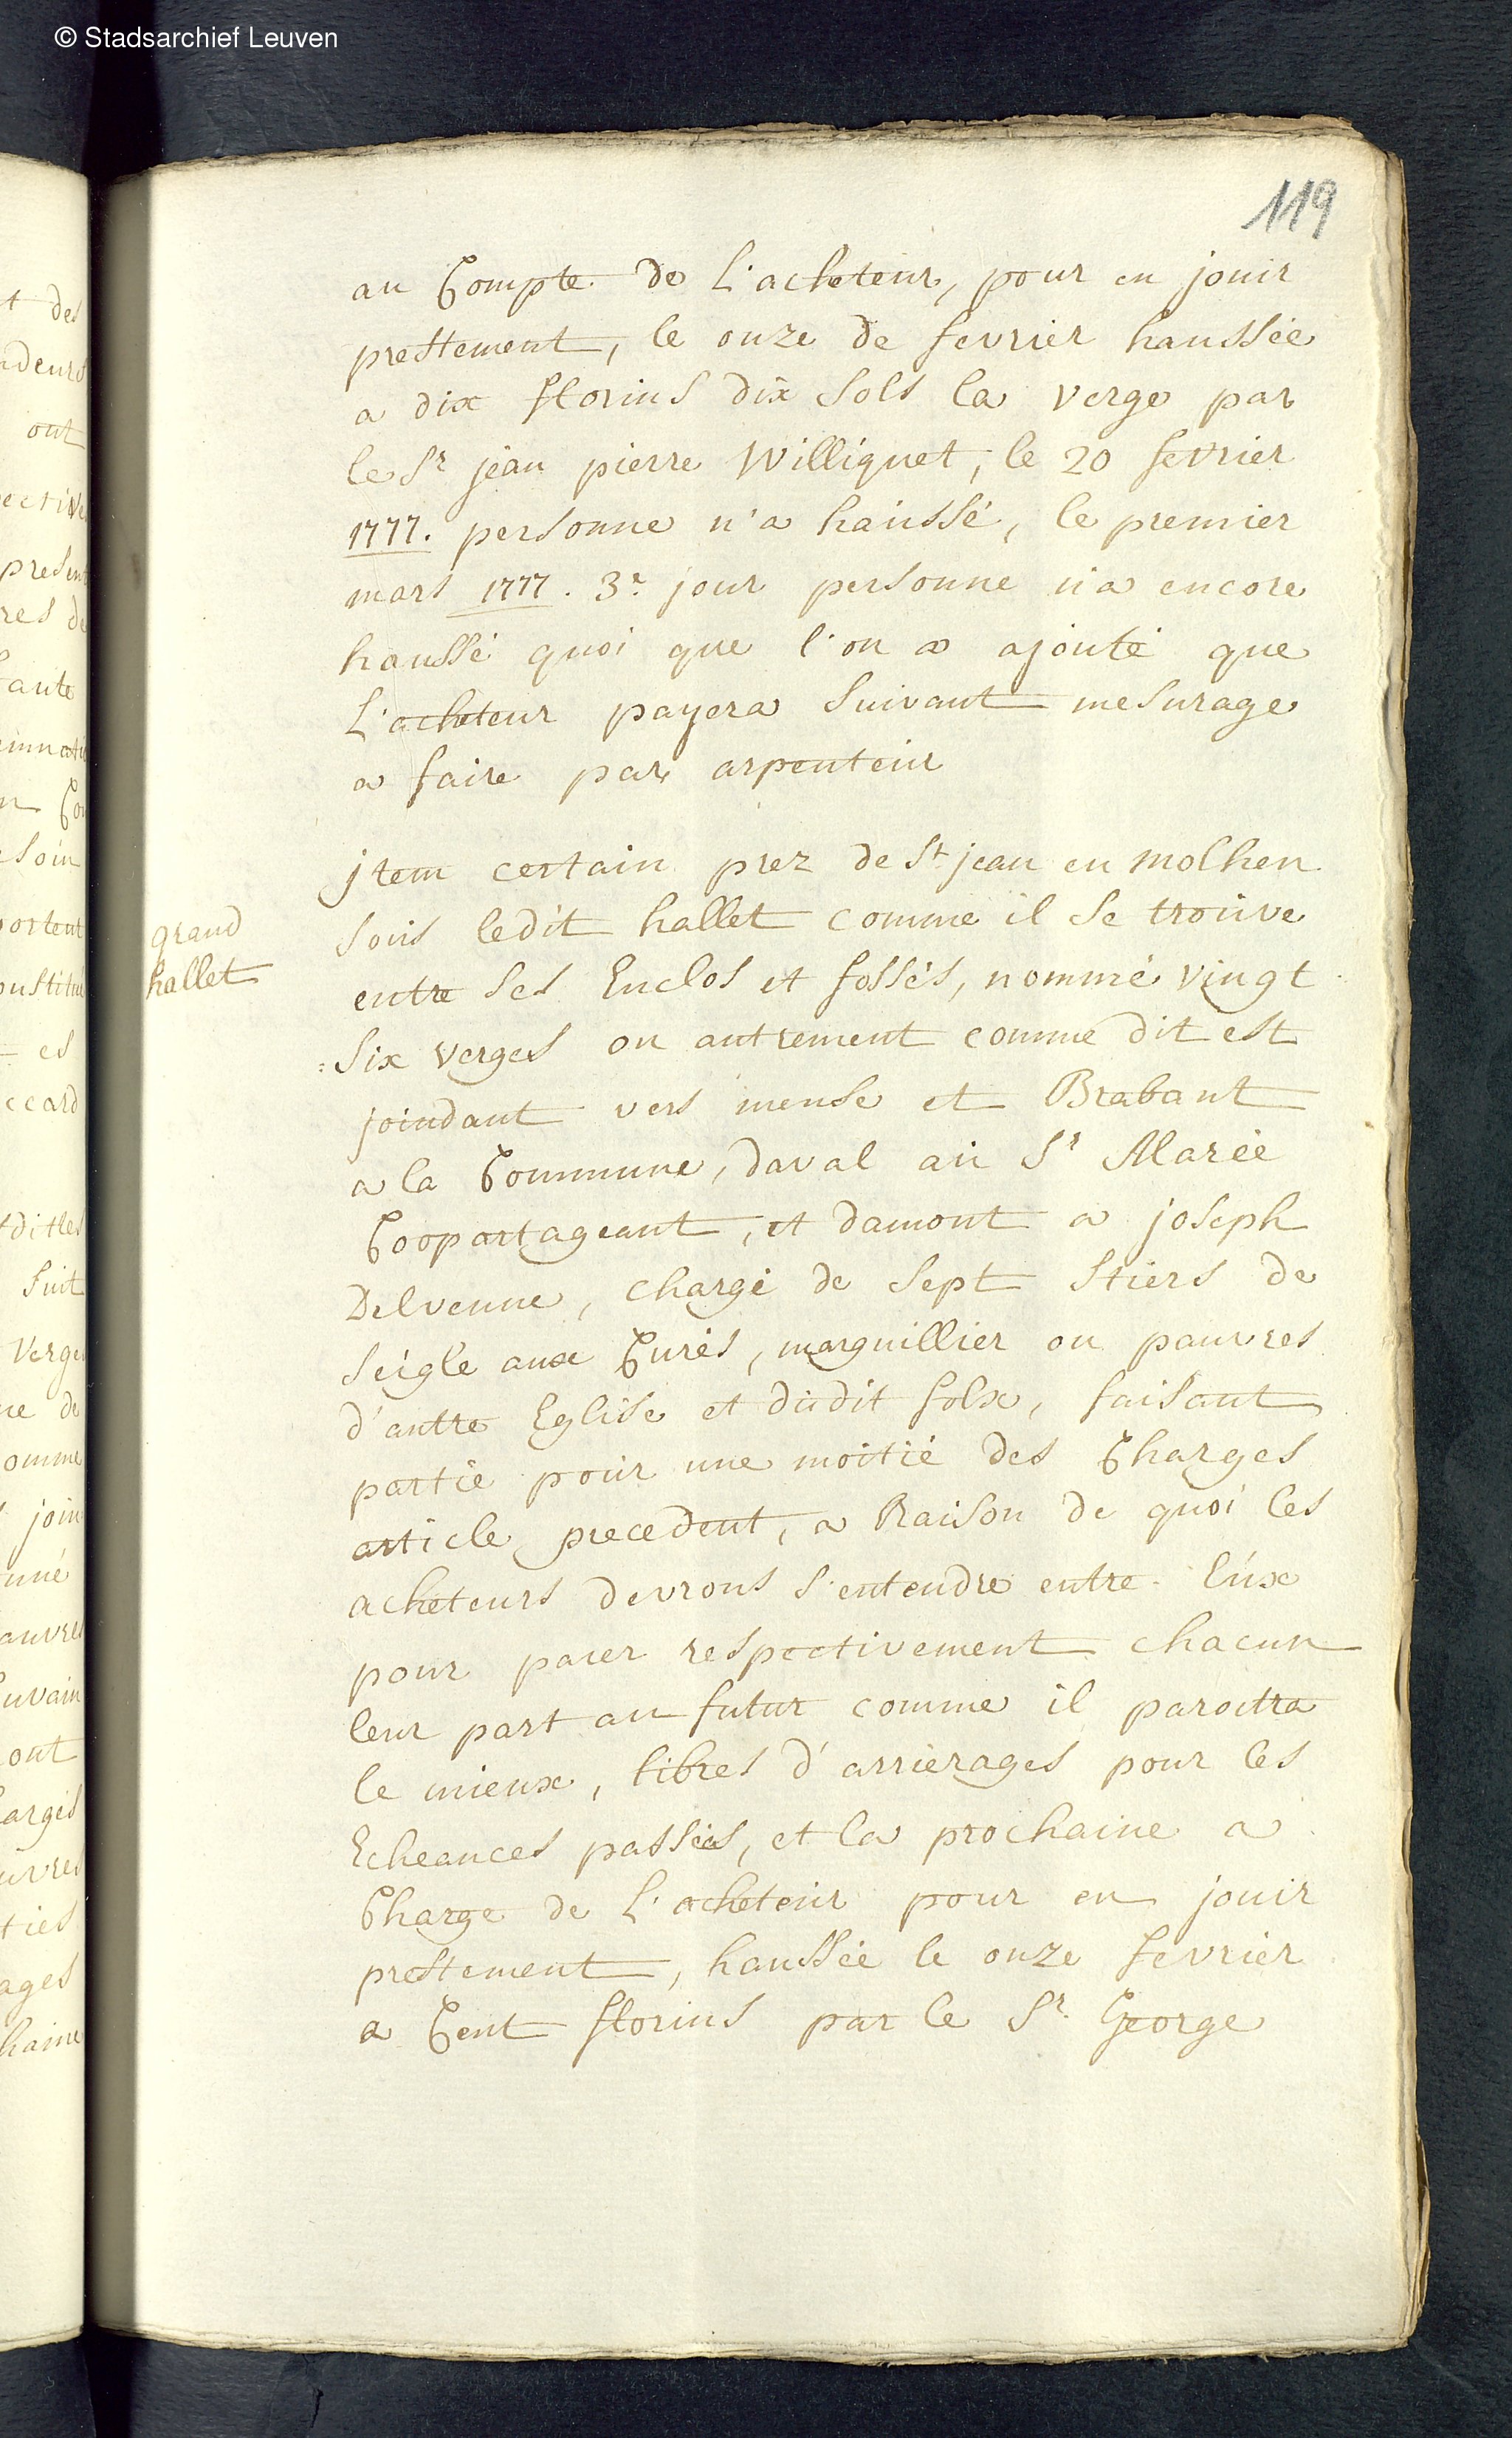 © Stadsarchief Leuven
119
au Compte de L'acheteur, pour en jouir
prestement, le onze de fevrier haussée
a dix florins dix sols la verge par
le Sr jean pierre Williquet, le 20 fevrier
1777. personne n'a haussé, le premier
mars 1777. 3e jour personne n'a encore
haussé quoi que l'on a ajouté que
L'acheteur payera suivant mesurage
a faire par arpenteur
jtem certain prez de St jean en molhen
grand
hallet
sous ledit hallet comme il se trouve
entre ses Enclos et fossés, nommé vingt
: six verges ou autrement comme dit est
joindant vers meuse et Brabant
a la Commune, daval au Sr Marée
Coopartageant, et damont a joseph
Delvenne, chargé de sept stiers de
seigle aux Curés, marguillier ou pauvres
d'autre Eglise et dudit folx, faisant
partie pour une moitié des Charges
article precedent, a Raison de quoi les
acheteurs devrons s'entendre entre Eux
pour paier respectivement chacun
leur part au futur comme il paroitra
le mieux, libres d'arrierages pour les
Echeances passées, et la prochaine a
Charge de L'acheteur pour en jouir
prestement, haussée le onze fevrier
a Cent florins par le Sr. George